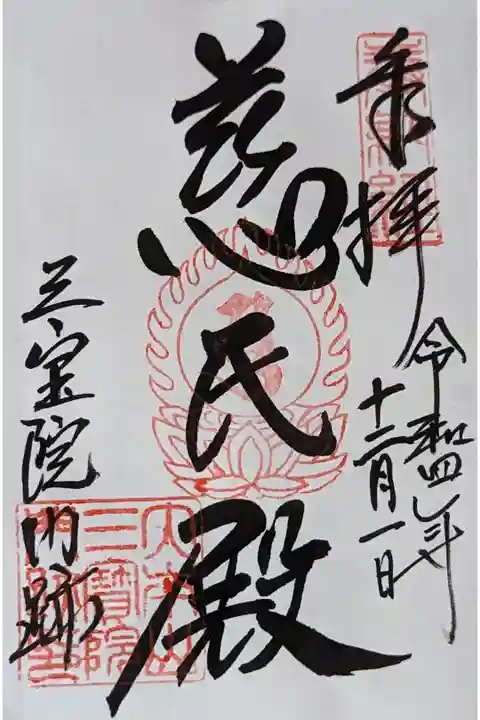 奉拝
令和四年
十二月一日
慈氏殿
三宝院
門跡
大本山
三寳院
門跡